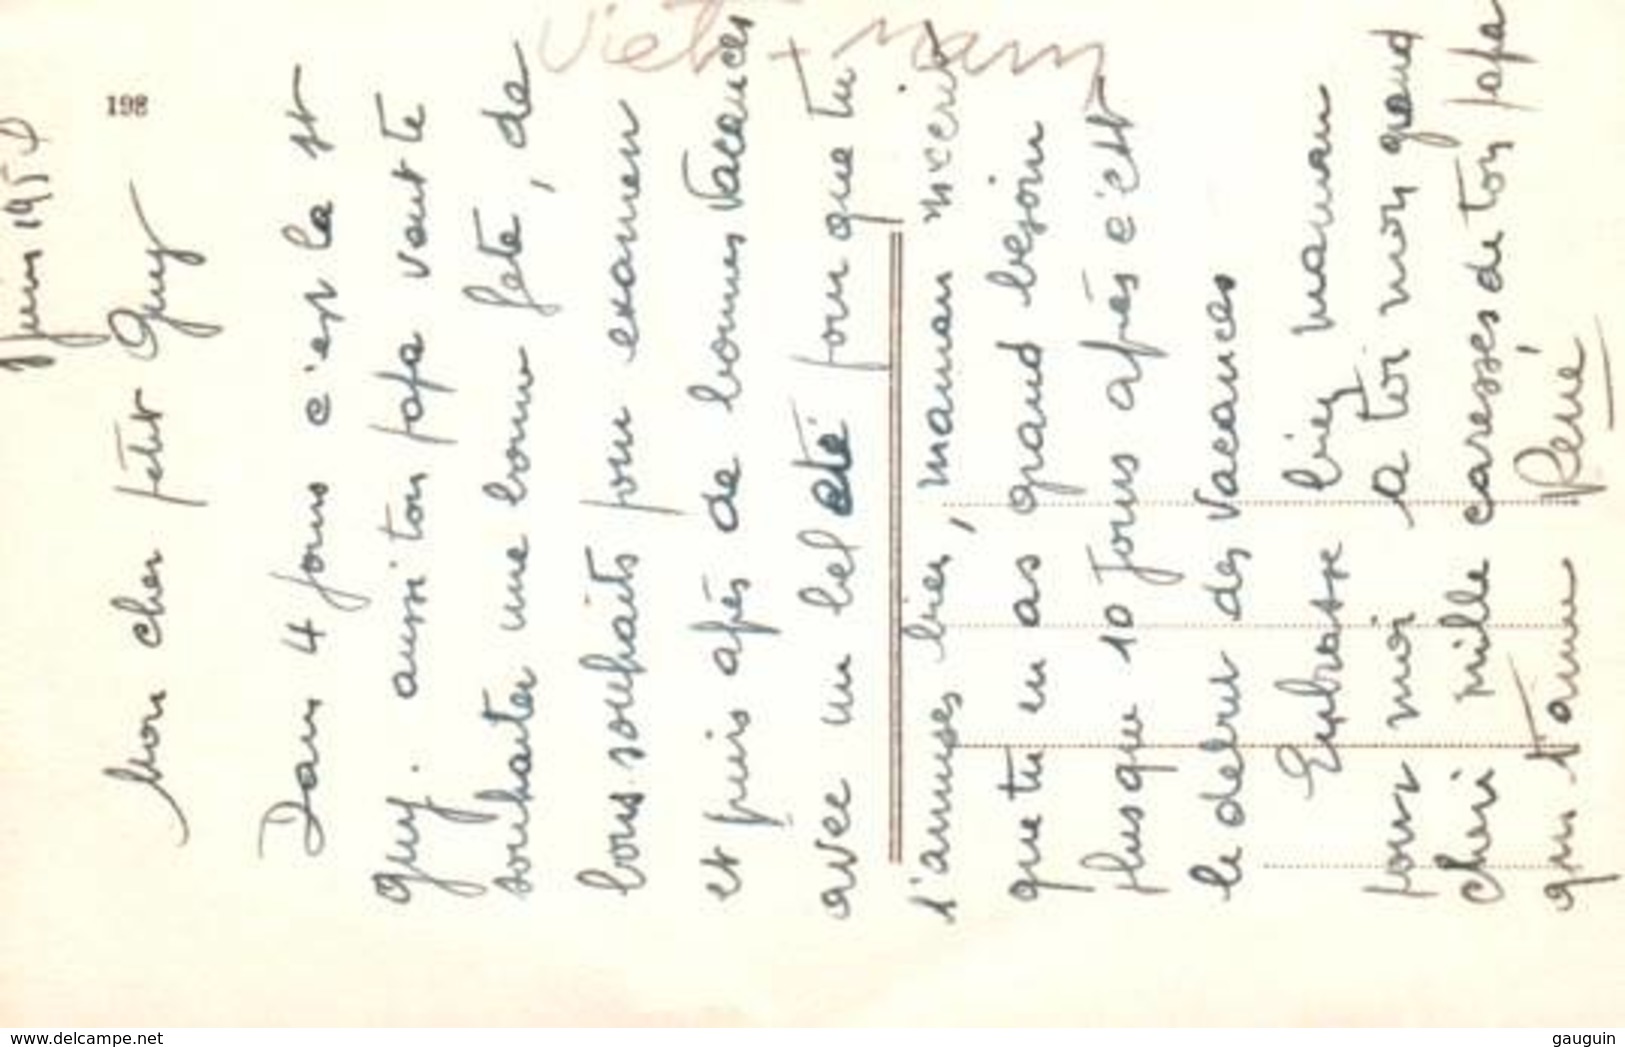 Viet-nam
198
Juin 195
Mon cher petit Guy
Dans 4 jours c'est la st
Guy. aussi ton papa veut te
souhaiter une bonne fete, de
bons souhaits pour examen
et puis aprés de bonnes vacances
avec un bel eté pour que tu
t'amuses bien, maman m'ecrit
que tu en as grand besoin
plus que 10 jours aprés c'est
le debut des vacances
Embrasse bien maman
pour moi a toi mon grand
cheri mille caresses de ton papa
qui t'aime René
www.delcampe.net
gauguin